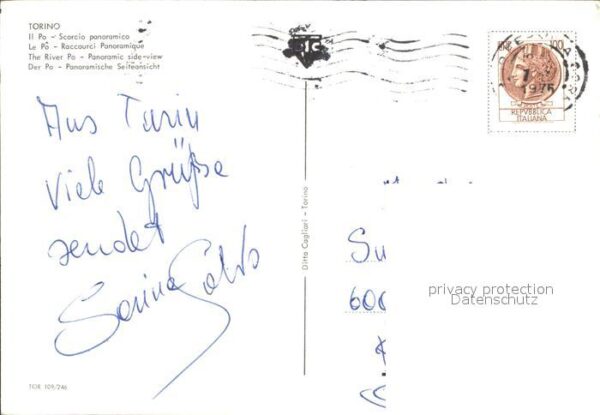 TORINO
Il Po - Scorcio panoramico
Le Po - Raccourci Panoramique
The River Po - Panoramic side-view
Der Po - Panoramische Seitenansicht
100
1975
REPVBBLICA
ITALIANA
Aus Turin
viele Grüße
sendet
Ditta Cagliari - Torino
Su
600
privacy protection
Datenschutz
TOR 109/246